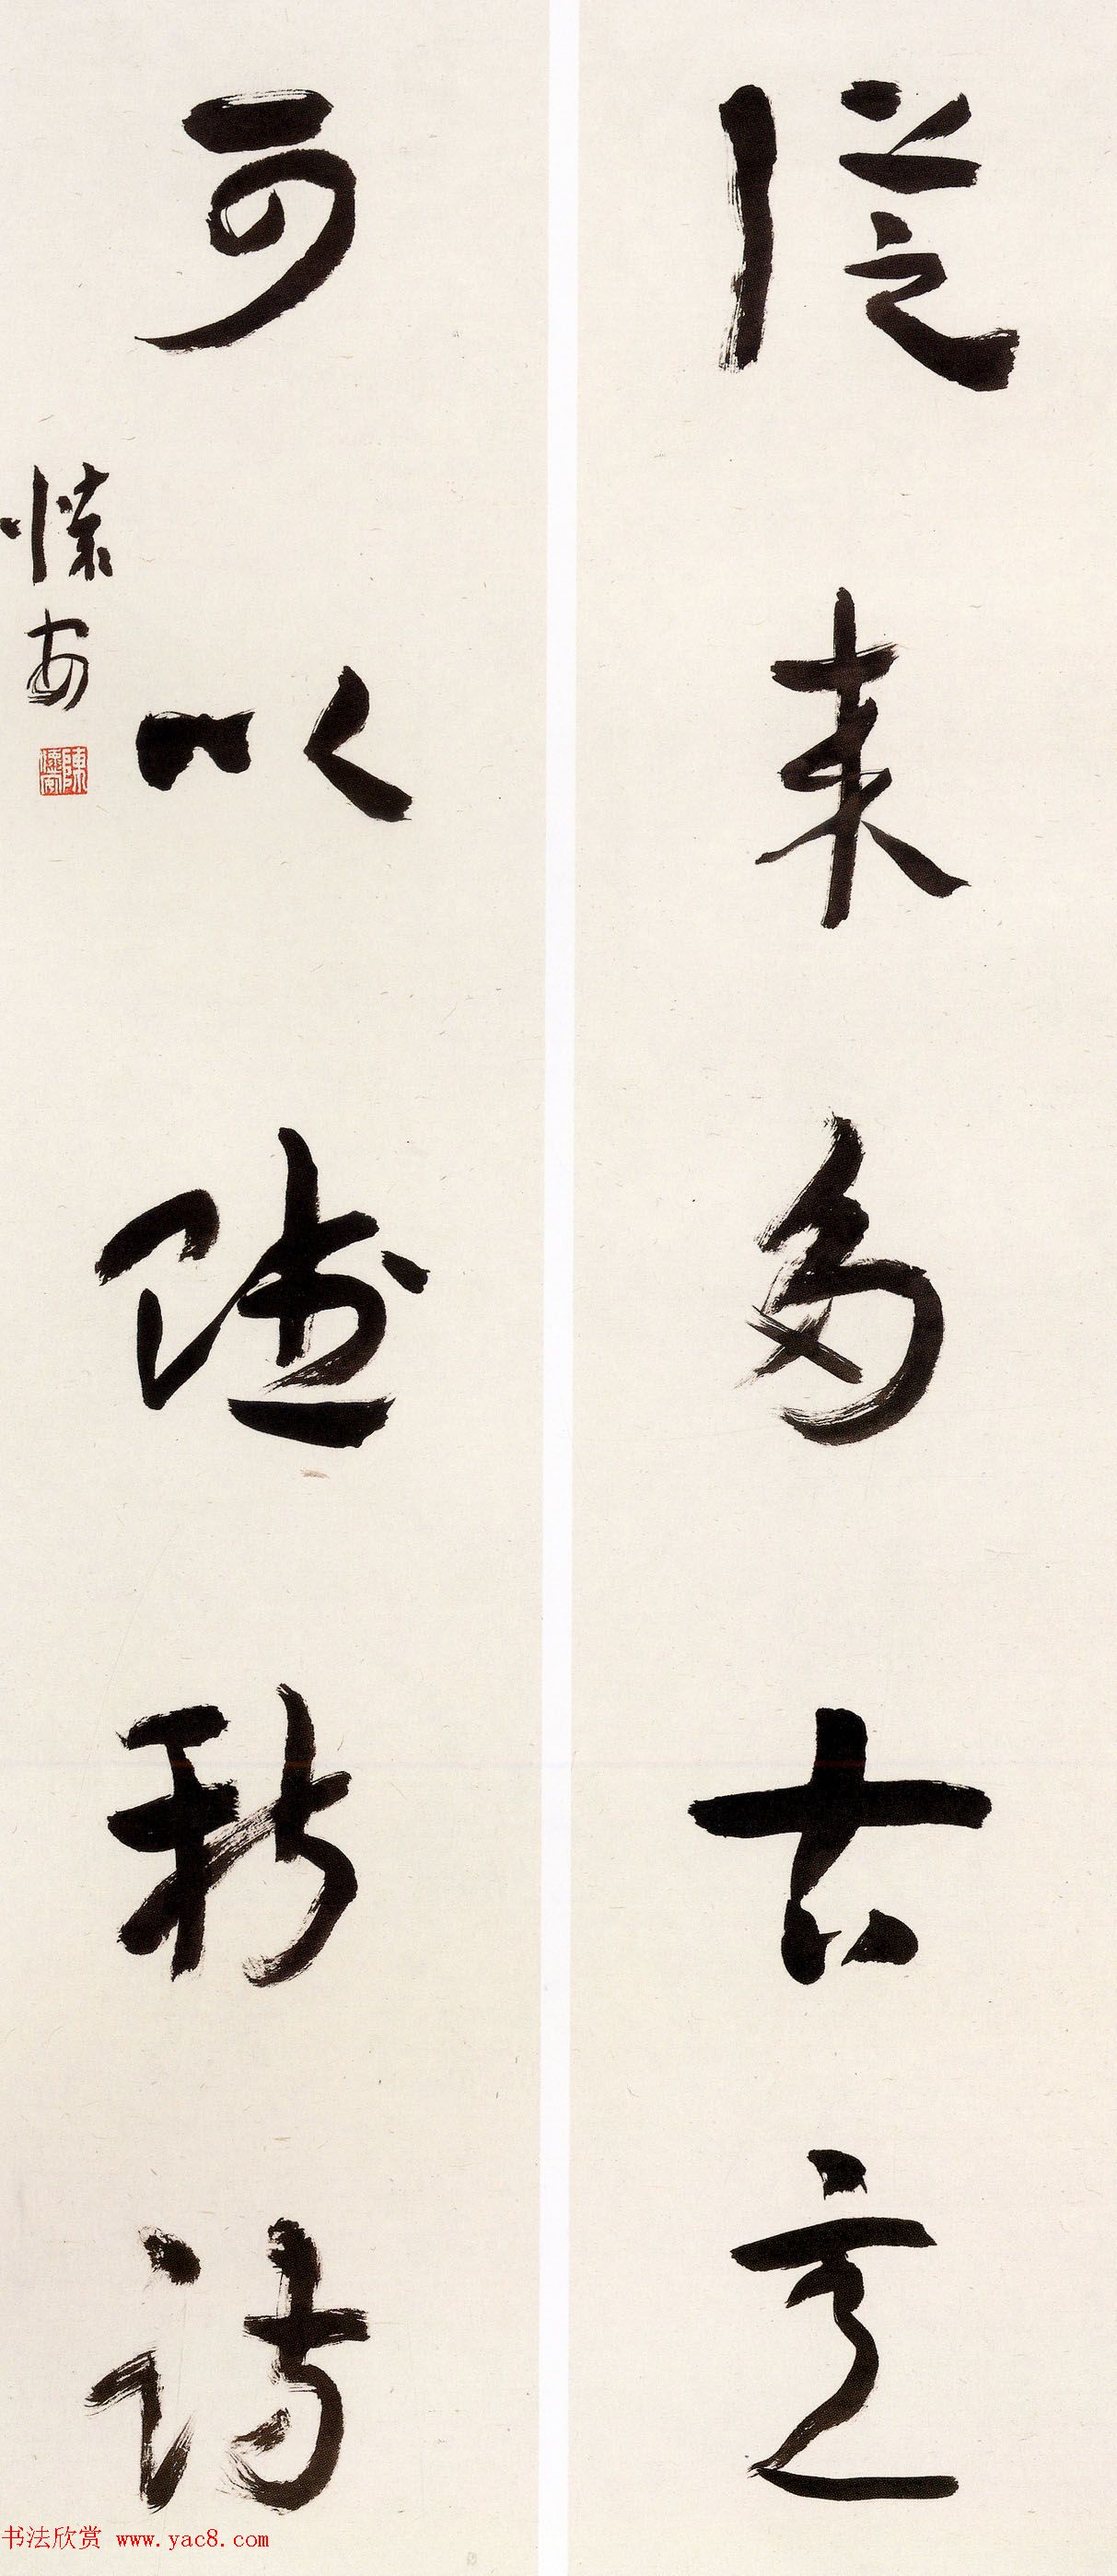 從来多古意
可以賦新詩
懷安
陳懷安
书法欣赏 www.yac8.com